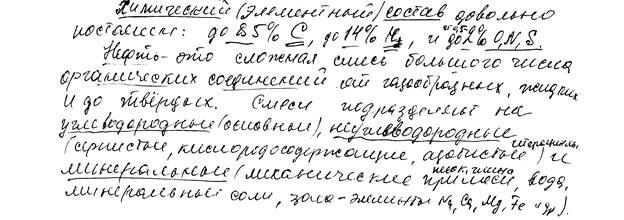 Химический (элементный) состав довольно
постоянен: до 85% C, до 14% H₂, и до 2% O, N, S.
Нефть - это сложная смесь большого числа
органических соединений от газообразных, жидких
и до твёрдых. Смеси подразделяют на
углеводородные (основные), неуглеводородные
(сернистые, кислородосодержащие, азотистые) и
минеральные (механические примеси, вода,
минеральные соли, зола-элементы Na, Ca, Mg, Fe и др.).